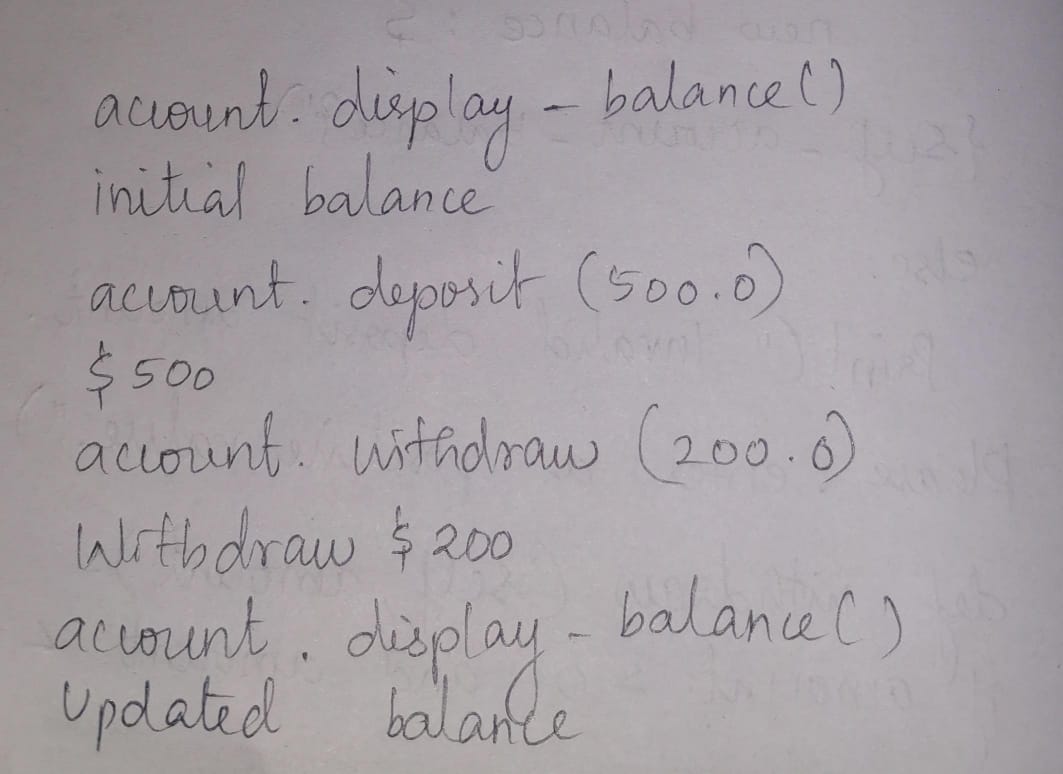 account. display - balance()
initial balance
account. deposit (500.0)
$500
account. withdraw (200.0)
Withdraw $200
account. display - balance()
Updated balance